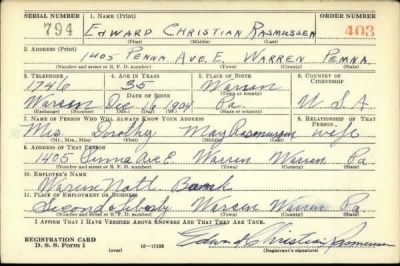 SERIAL NUMBER 1. NAME (Print) ORDER NUMBER
794 EDWARD CHRISTIAN RASMUSSEN 403
(First) (Middle) (Last)
2. ADDRESS (Print)
1405 PENNA. AVE. E. WARREN PENNA.
(Number and street or R. F. D. number) (Town) (County) (State)
3. TELEPHONE 4. AGE IN YEARS 5. PLACE OF BIRTH 6. COUNTRY OF CITIZENSHIP
1746 35 Warren
DATE OF BIRTH (Town or county)
Warren Dec 1904 Pa. U. S. A.
(Exchange) (Number) (Mo.) (Day) (Yr.) (State or country)
7. NAME OF PERSON WHO WILL ALWAYS KNOW YOUR ADDRESS 8. RELATIONSHIP OF THAT PERSON
Mrs. Dorothy May Rasmussen wife
(Mr., Mrs., Miss) (First) (Middle) (Last)
9. ADDRESS OF THAT PERSON
1405 Penna Ave E. Warren Warren Pa
(Number and street or R. F. D. number) (Town) (County) (State)
10. EMPLOYER'S NAME
Warren Natl. Bank
11. PLACE OF EMPLOYMENT OR BUSINESS
Second & Liberty Warren Warren Pa
(Number and street or R. F. D. number) (Town) (County) (State)
I AFFIRM THAT I HAVE VERIFIED ABOVE ANSWERS AND THAT THEY ARE TRUE.
REGISTRATION CARD
D. S. S. Form 1 (over) 16-17105 Edward Christian Rasmussen
(Registrant's signature)